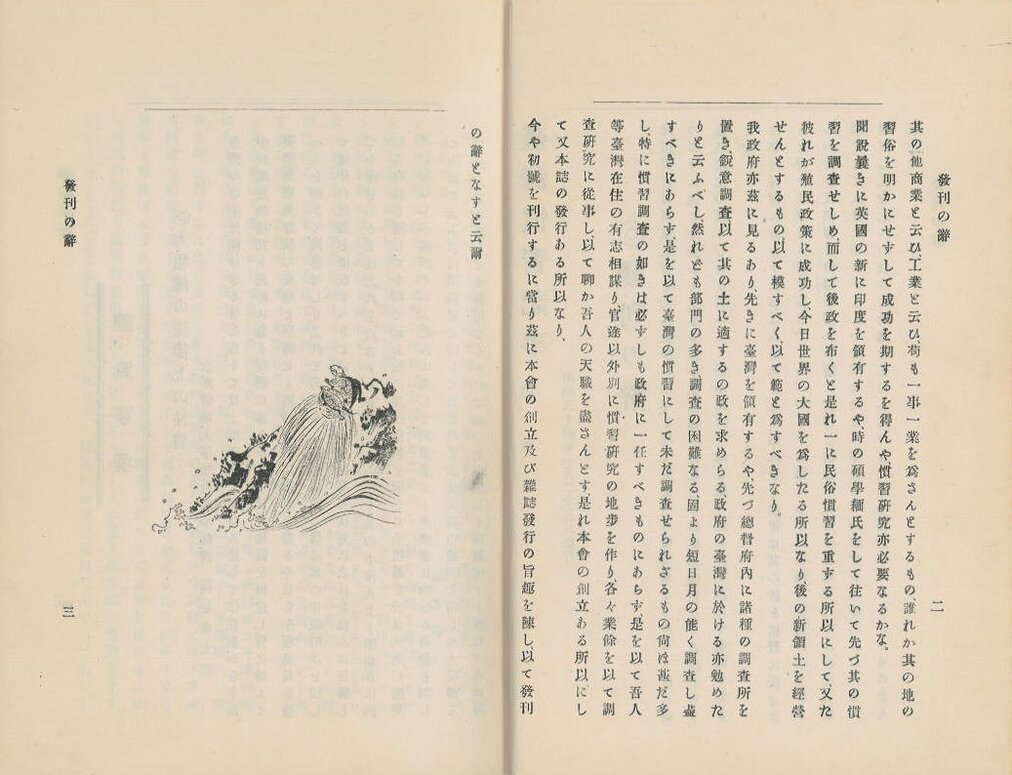 發刊の辭
二
其の他商業と云ひ、工業と云ひ、苟も一事一業を爲さんとするもの、誰れか其の地の
習俗を明かにせすして成功を期するを得んや、慣習硏究亦必要なるかな。
聞說曩きに英國の新に印度を領有するや、時の碩學緬氏をして往いて先づ其の慣
習を調查せしめ、而して後政を布くと是れ一に民俗慣習を重する所以にして、又た
彼れが殖民政策に成功し今日世界の大國を爲したる所以なり、後の新領土を經營
せんとするもの以て模すべく、以て範と爲すべきなり。
我政府亦茲に見るあり、先きに臺灣を領有するや、先づ總督府內に諸種の調查所を
置き、銳意調查、以て其の土に適するの政を求めらる政府の臺灣に於ける亦勉めた
りと云ふべし、然れども部門の多き、調查の困難なる、固より短日月の能く調查し盡
すべきにあらす是を以て臺灣の慣習にして未だ調查せられざるもの尙ほ甚だ多
し、特に慣習調查の如きは必ずしも政府に一任すべきものにあらす、是を以て吾人
等臺灣在住の有志相謀り、官途以外別に慣習硏究の地步を作り、各々業餘を以て調
查硏究に從事し、以て聊か吾人の天職を盡さんとす是れ本會の創立ある所以にし
て又本誌の發行ある所以なり、
今や初號を刊行するに當り茲に本會の創立及び雜誌發行の旨趣を陳し、以て發刊
の辭となすと云爾
發刊の辭
三